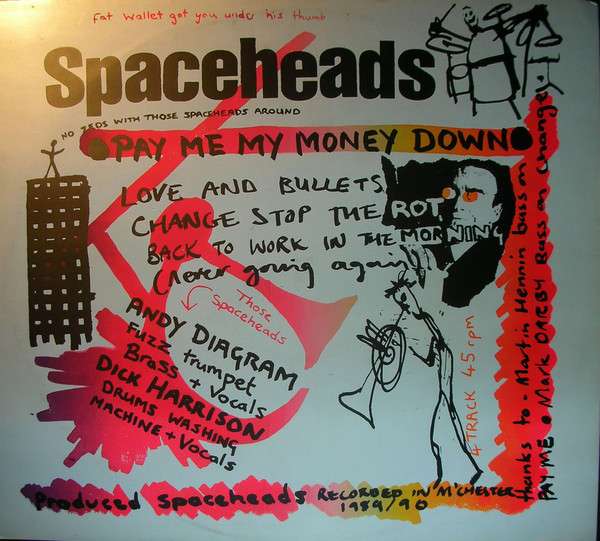 Fat Wallet got you under his thumb
Spaceheads
NO ZEDS WITH THOSE SPACEHEADS AROUND
PAY ME MY MONEY DOWN
LOVE AND BULLETS
CHANGE STOP THE ROT
BACK TO WORK IN THE MORNING
(Never going again)
Those
Spaceheads
ANDY DIAGRAM
Fuzz trumpet
Brass + Vocals
DICK HARRISON
DRUMS WASHING
MACHINE + Vocals
4 TRACK 45 rpm
thanks to - Martin Hennin bass on
PAY ME • Mark DARBY Bass on Change.
Produced Spaceheads RECORDED IN M'CHESTER
1989/90